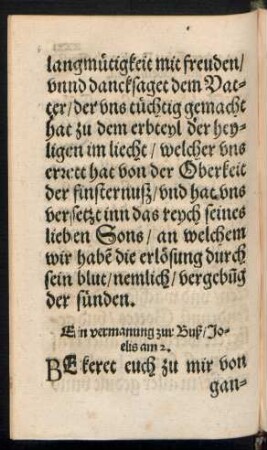 langmütigkeit mit freuden/
vnnd dancksaget dem Vat-
ter/der vns tüchtig gemacht
hat zu dem erbteyl der hey-
ligen im liecht/welcher vns
errett hat von der Oberkeit
der finsternuß/vnd hat vns
versetzt inn das reych seines
lieben Sons/an welchem
wir habē die erlösung durch
sein blut/nemlich/vergebūg
der sünden.
Ein vermanung zur Buß/Jo-
elis am 2.
BEkeret euch zu mir von
gan-